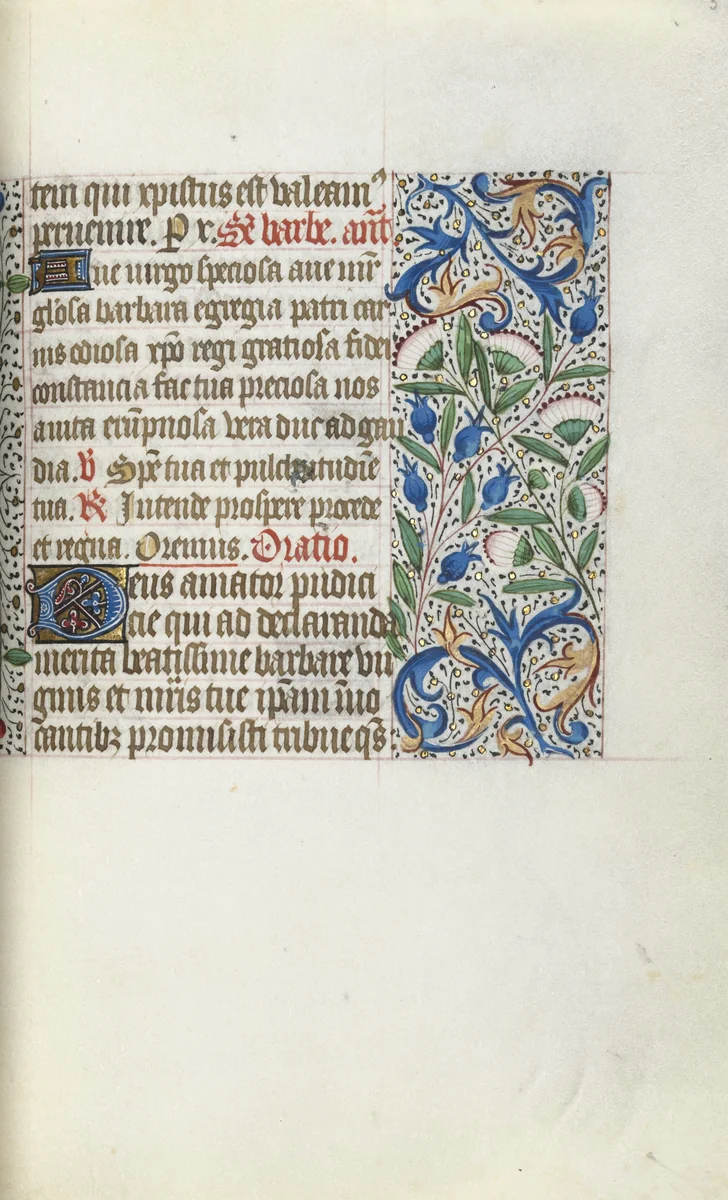 tem qui xpistus est valeamꝰ
peruenire. P vͬ. Sͨe barbe. anͭ
Aue uirgo speciosa aue uirͦ
gl'osa barbara egregia patri car
nis odiosa xp̄o regi gratiosa fidei
constancia factua preciosa nos
auita erūpnosa vera duc ad gau
dia. V Spē tua et pulchritudīe
tua. R Intende prospere procede
et regna. Oremus. Oratio.
Deus amator pudici
cie qui ad declaranda
merita beatissime barbare vir
ginis et mr̄is tue ip̄am īuo
cantibꝫ promisisti tribue qs̄